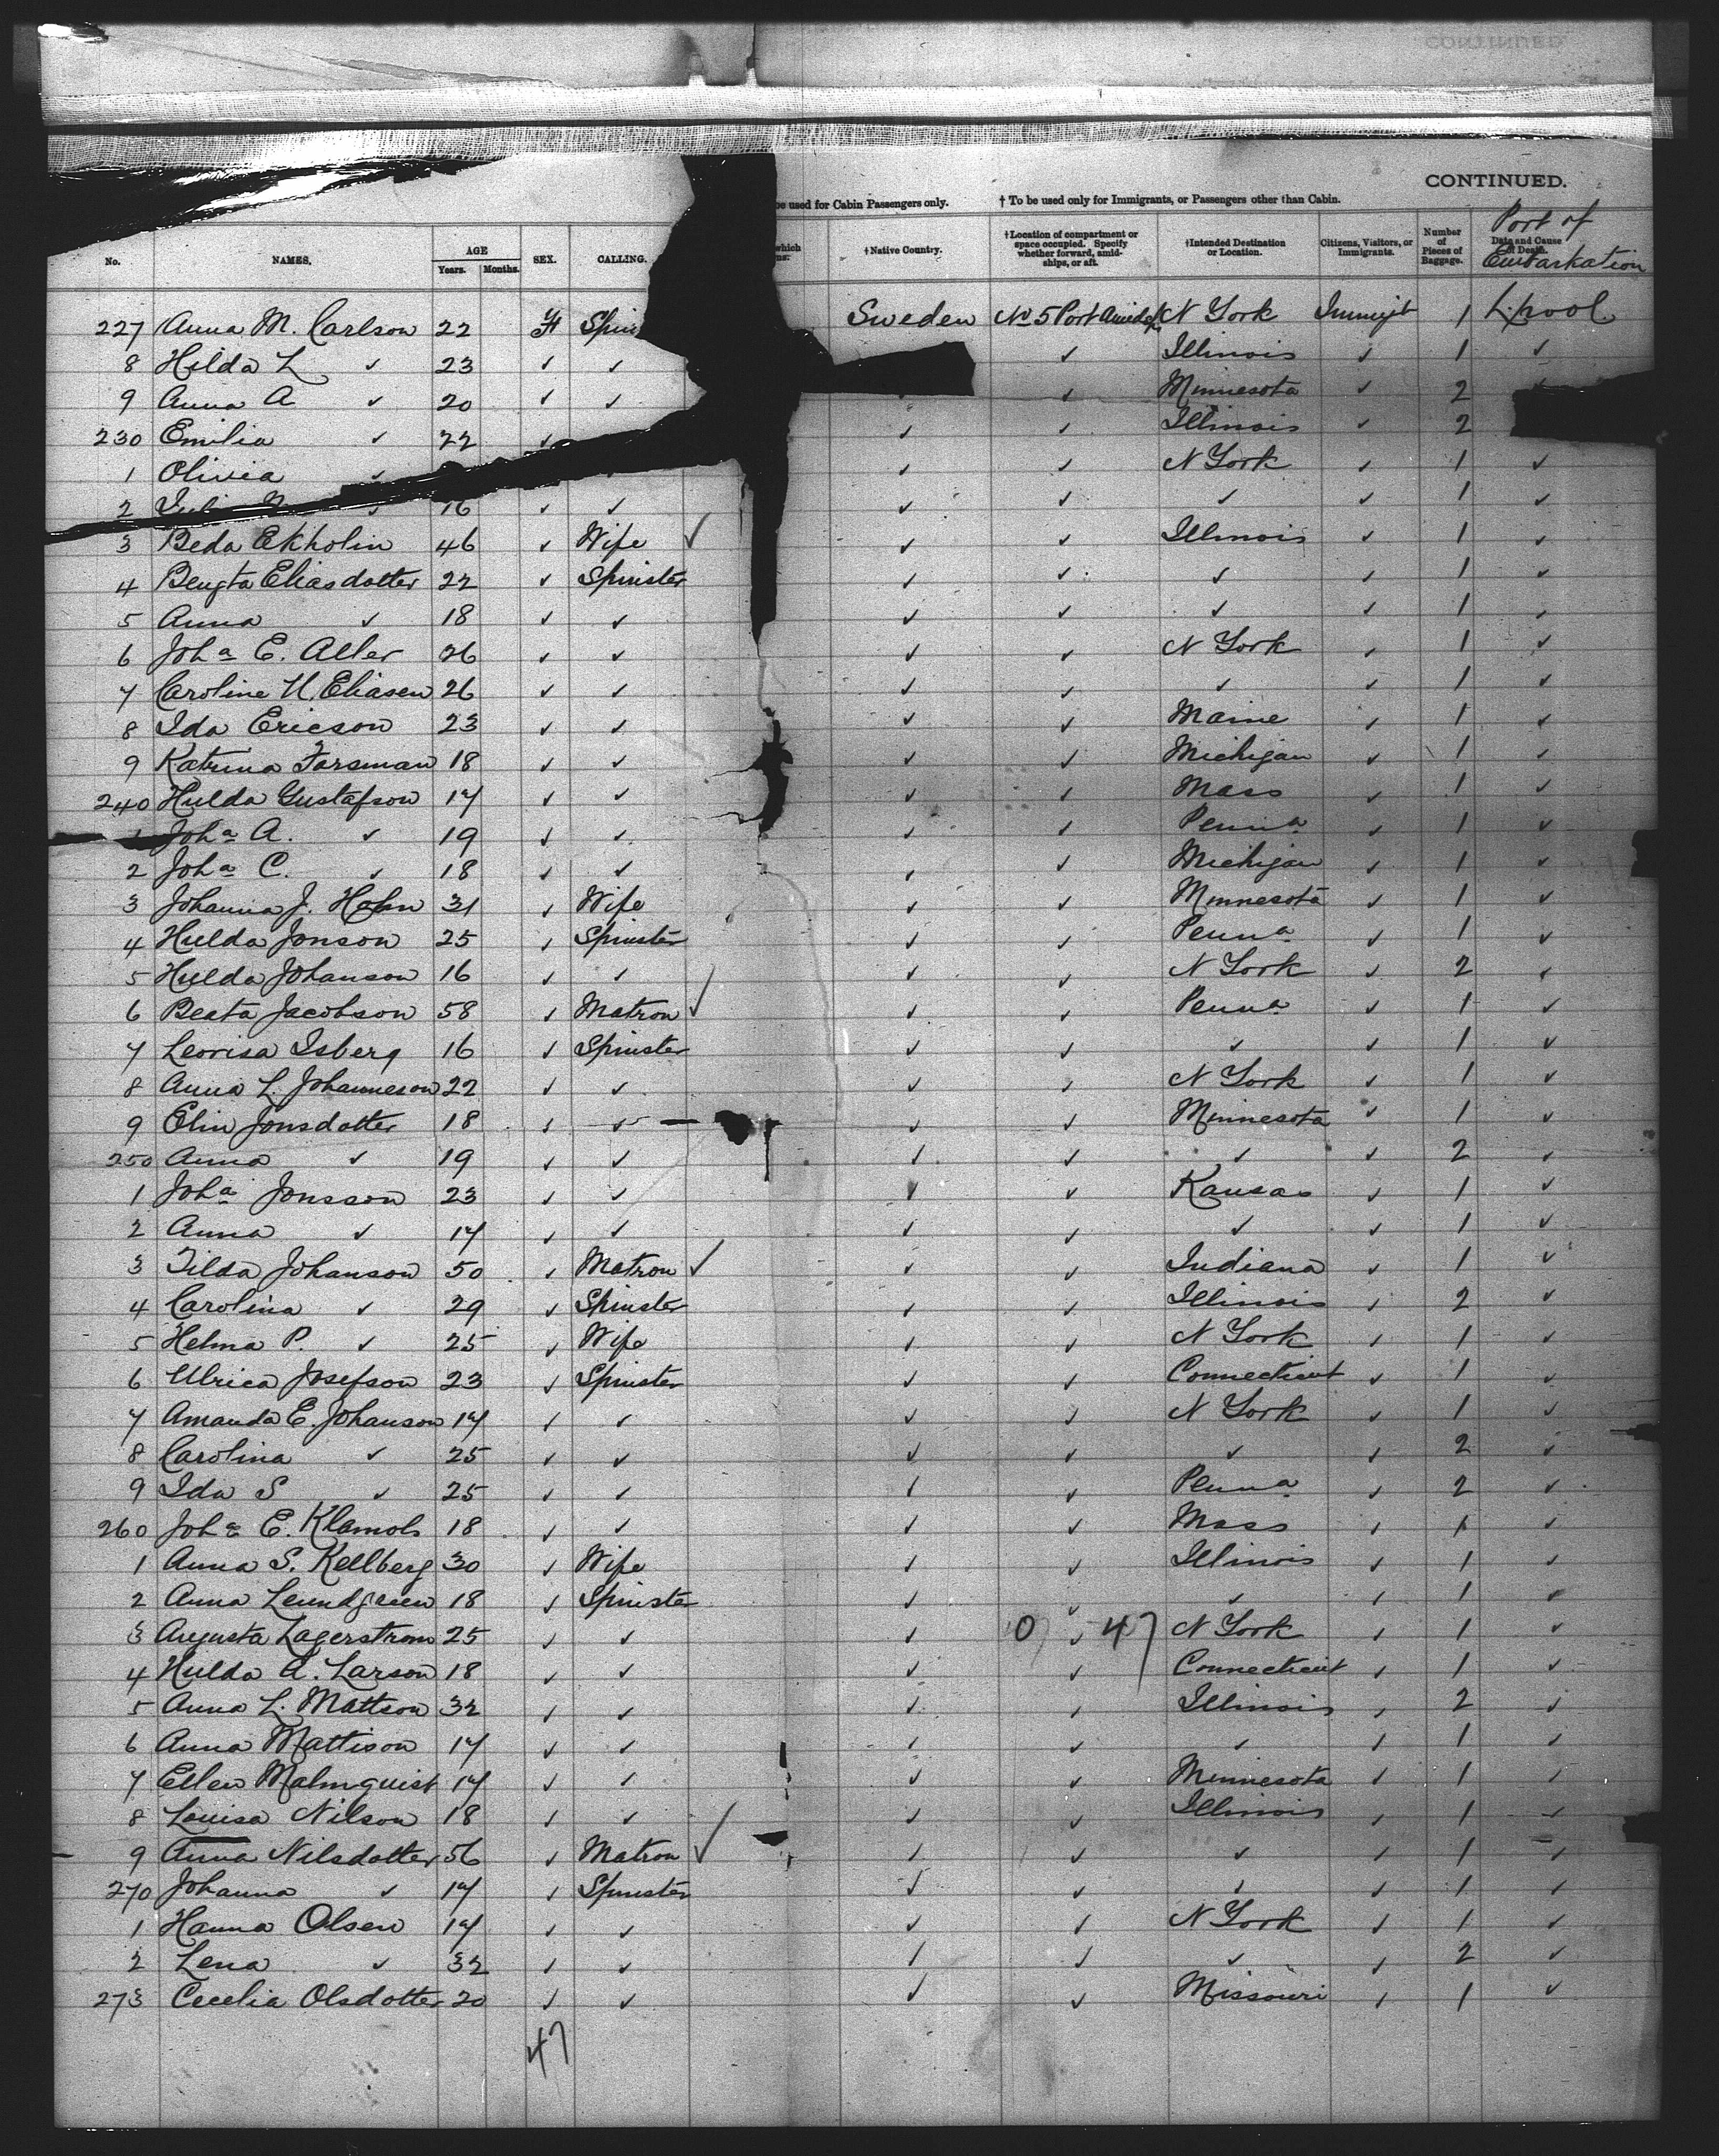 CONTINUED.
be used for Cabin Passengers only. † To be used only for Immigrants, or Passengers other than Cabin.
No. NAMES. AGE Years. Months. SEX. CALLING. which †Native Country. †Location of compartment or space occupied. Specify whether forward, amidships, or aft. †Intended Destination or Location. Citizens, Visitors, or Immigrants. Number of Pieces of Baggage. Date and Cause of Death. Port of Embarkation
227 Anna M. Carlson 22 F Spin Sweden No 5 Port Amids N York Immigt 1 L.pool.
8 Hilda L ✓ 23 ✓ ✓ ✓ Illinois ✓ 1 ✓
9 Anna A ✓ 20 ✓ ✓ ✓ ✓ Minnesota ✓ 2 ✓
230 Emilia ✓ 22 ✓ ✓ ✓ Illinois ✓ 2
1 Olivia ✓ ✓ ✓ N York ✓ 1 ✓
2 ✓ 16 ✓ ✓ ✓ ✓ ✓ ✓ 1 ✓
3 Beda Ekholin 46 ✓ Wife ✓ ✓ ✓ Illinois ✓ 1 ✓
4 Bengta Eliasdotter 22 ✓ Spinster ✓ ✓ ✓ ✓ 1 ✓
5 Anna ✓ 18 ✓ ✓ ✓ ✓ ✓ ✓ 1 ✓
6 Joha E. Aller 26 ✓ ✓ ✓ ✓ N York ✓ 1 ✓
7 Caroline U. Eliasen 26 ✓ ✓ ✓ ✓ ✓ ✓ 1 ✓
8 Ida Ericson 23 ✓ ✓ ✓ ✓ Maine ✓ 1 ✓
9 Katrina Forsman 18 ✓ ✓ ✓ ✓ Michigan ✓ 1 ✓
240 Hulda Gustafson 17 ✓ ✓ ✓ ✓ Mass ✓ 1 ✓
1 Joha A. ✓ 19 ✓ ✓ ✓ ✓ Penna ✓ 1 ✓
2 Joha C. ✓ 18 ✓ ✓ ✓ ✓ Michigan ✓ 1 ✓
3 Johanna J. Hahn 31 ✓ Wife ✓ ✓ Minnesota ✓ 1 ✓
4 Hulda Jonson 25 ✓ Spinster ✓ ✓ Penna ✓ 1 ✓
5 Hulda Johanson 16 ✓ ✓ ✓ ✓ N York ✓ 2 ✓
6 Beata Jacobson 58 ✓ Matron ✓ ✓ ✓ Penna ✓ 1 ✓
7 Leorisa Isberg 16 ✓ Spinster ✓ ✓ ✓ ✓ 1 ✓
8 Anna L. Johanneson 22 ✓ ✓ ✓ ✓ N York ✓ 1 ✓
9 Elin Jonsdotter 18 ✓ ✓ ✓ ✓ Minnesota ✓ 1 ✓
250 Anna ✓ 19 ✓ ✓ ✓ ✓ ✓ ✓ 2 ✓
1 Joha Jonsson 23 ✓ ✓ ✓ ✓ Kansas ✓ 1 ✓
2 Anna ✓ 17 ✓ ✓ ✓ ✓ ✓ ✓ 1 ✓
3 Tilda Johanson 50 ✓ Matron ✓ ✓ ✓ Indiana ✓ 1 ✓
4 Carolina ✓ 29 ✓ Spinster ✓ ✓ Illinois ✓ 2 ✓
5 Helma P. ✓ 25 ✓ Wife ✓ ✓ N York ✓ 1 ✓
6 Ulrica Josefson 23 ✓ Spinster ✓ ✓ Connecticut ✓ 1 ✓
7 Amanda E. Johanson 17 ✓ ✓ ✓ ✓ N York ✓ 1 ✓
8 Carolina ✓ 25 ✓ ✓ ✓ ✓ ✓ ✓ 2 ✓
9 Ida S ✓ 25 ✓ ✓ ✓ ✓ Penna ✓ 2 ✓
260 Joha E. 18 ✓ ✓ ✓ ✓ Mass ✓ 1 ✓
1 Anna S. Kellberg 30 ✓ Wife ✓ ✓ Illinois ✓ 1 ✓
2 Anna Leundgreen 18 ✓ Spinster ✓ ✓ ✓ ✓ 1 ✓
3 Augusta Lagerstrom 25 ✓ ✓ ✓ 0 ✓ 47 N York ✓ 1 ✓
4 Hulda A. Larson 18 ✓ ✓ ✓ ✓ Connecticut ✓ 1 ✓
5 Anna L. Mattson 32 ✓ ✓ ✓ ✓ Illinois ✓ 2 ✓
6 Anna Mattison 17 ✓ ✓ ✓ ✓ ✓ ✓ 1 ✓
7 Ellen Malmquist 17 ✓ ✓ ✓ ✓ Minnesota ✓ 1 ✓
8 Louisa Nilson 18 ✓ ✓ ✓ ✓ Illinois ✓ 1 ✓
9 Anna Nilsdotter 56 ✓ Matron ✓ ✓ ✓ ✓ ✓ 1 ✓
270 Johanna ✓ 17 ✓ Spinster ✓ ✓ ✓ ✓ 1 ✓
1 Hanna Olsen 17 ✓ ✓ ✓ ✓ N York ✓ 1 ✓
2 Lena ✓ 32 ✓ ✓ ✓ ✓ ✓ ✓ 2 ✓
273 Cecelia Olsdotter 20 ✓ ✓ ✓ ✓ Missouri ✓ 1 ✓
47